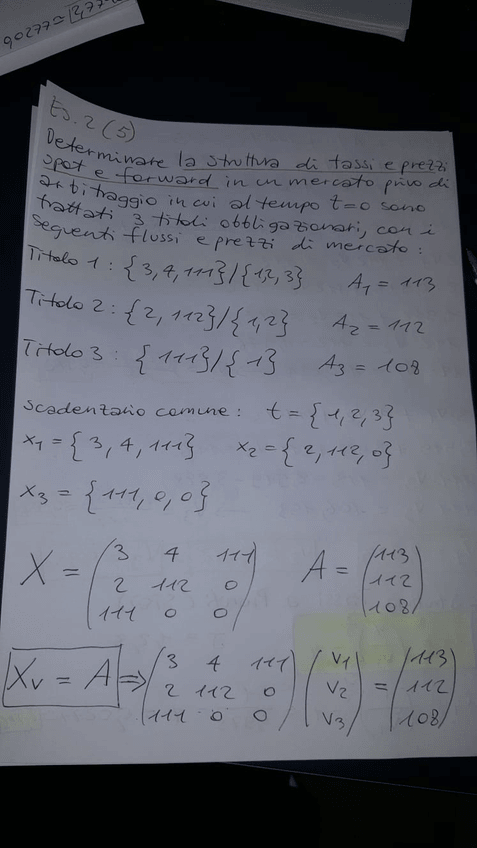 90277 ≈ 2,77
Es. 2 (5)
Determinare la struttura di tassi e prezzi
spot e forward in un mercato privo di
arbitraggio in cui al tempo t=0 sono
trattati 3 titoli obbligazionari, con i
seguenti flussi e prezzi di mercato:
Titolo 1: {3, 4, 111}/{1,2,3} A₁ = 113
Titolo 2: {2, 112}/{1,2} A₂ = 112
Titolo 3: {111}/{1} A₃ = 108
Scadenzario comune: t = {1, 2, 3}
x₁ = {3, 4, 111} x₂ = {2, 112, 0}
x₃ = {111, 0, 0}
X = (3 4 111 A = (113
2 112 0 112
111 0 0) 108)
Xv = A ⇒ (3 4 111 (v₁ = (113
2 112 0 v₂ 112
111 0 0) v₃) 108)